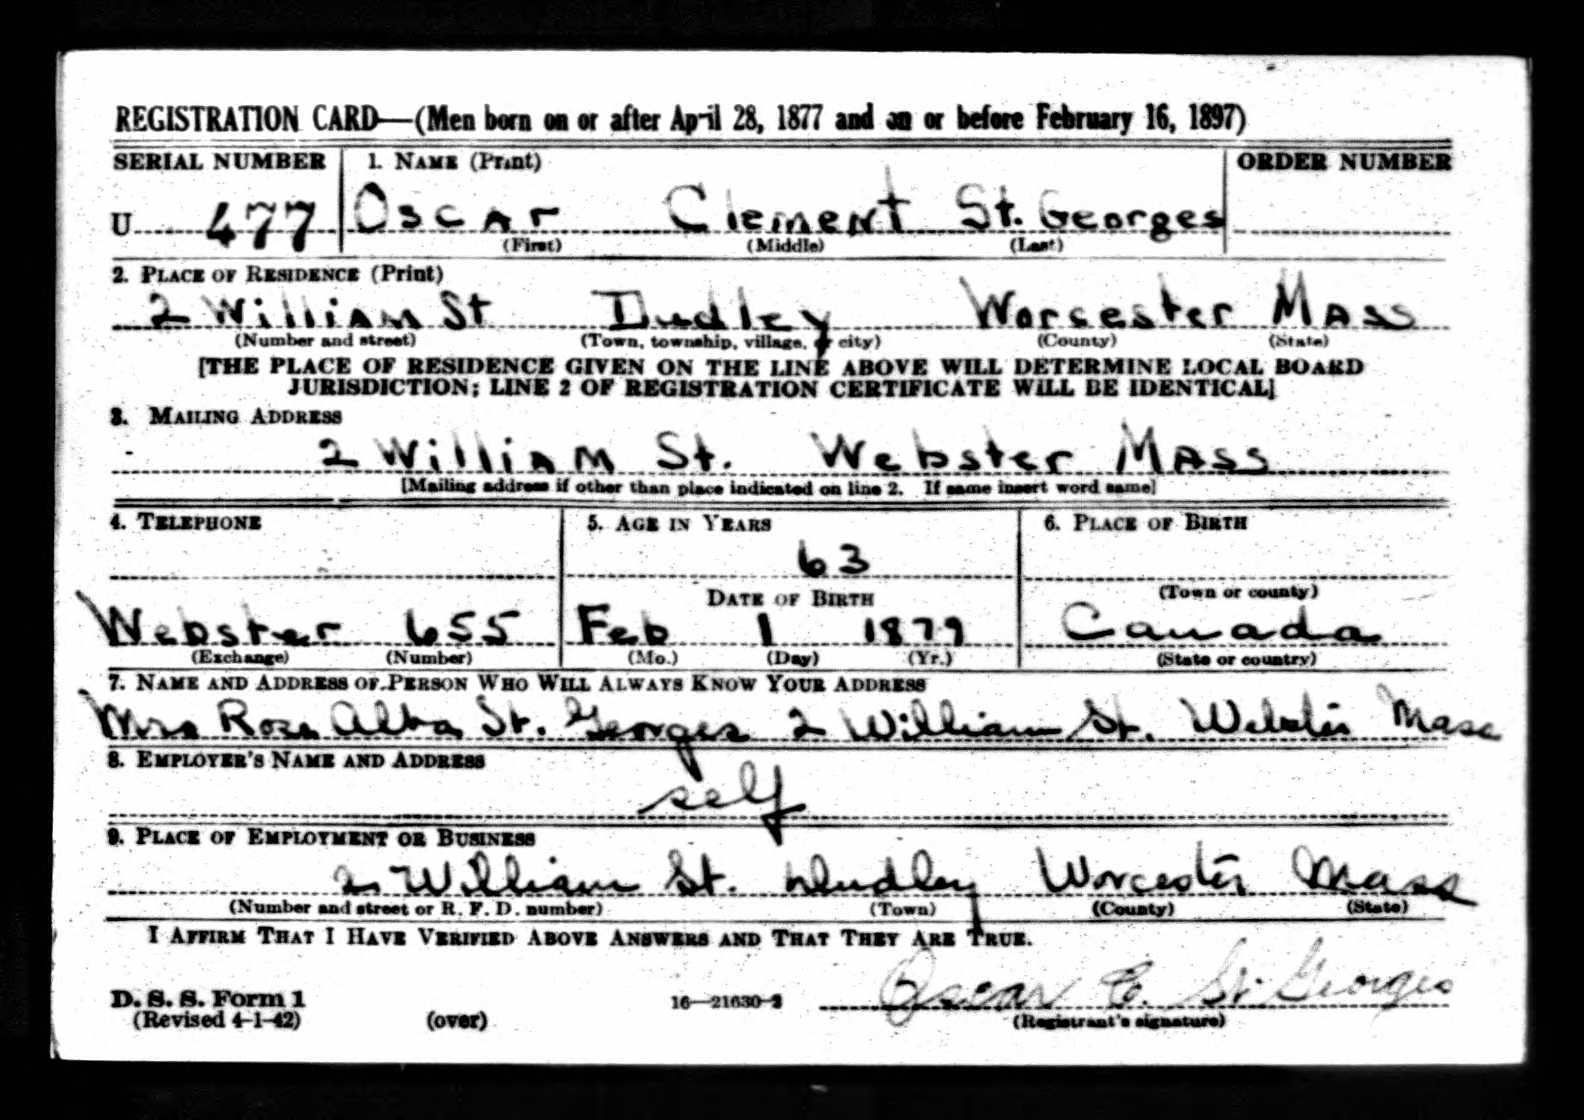 REGISTRATION CARD—(Men born on or after April 28, 1877 and on or before February 16, 1897)
SERIAL NUMBER 1. NAME (Print) ORDER NUMBER
U 477 Oscar Clement St. Georges
(First) (Middle) (Last)
2. PLACE OF RESIDENCE (Print)
2 William St Dudley Worcester Mass
(Number and street) (Town, township, village, or city) (County) (State)
[THE PLACE OF RESIDENCE GIVEN ON THE LINE ABOVE WILL DETERMINE LOCAL BOARD
JURISDICTION; LINE 2 OF REGISTRATION CERTIFICATE WILL BE IDENTICAL]
3. MAILING ADDRESS
2 William St. Webster Mass
[Mailing address if other than place indicated on line 2. If same insert word same]
4. TELEPHONE 5. AGE IN YEARS 6. PLACE OF BIRTH
63
DATE OF BIRTH (Town or county)
Webster 655 Feb 1 1879 Canada
(Exchange) (Number) (Mo.) (Day) (Yr.) (State or country)
7. NAME AND ADDRESS OF PERSON WHO WILL ALWAYS KNOW YOUR ADDRESS
Mrs Rose Alba St. Georges 2 William St. Webster Mass
8. EMPLOYER'S NAME AND ADDRESS
self
9. PLACE OF EMPLOYMENT OR BUSINESS
2 William St. Dudley Worcester Mass
(Number and street or R. F. D. number) (Town) (County) (State)
I AFFIRM THAT I HAVE VERIFIED ABOVE ANSWERS AND THAT THEY ARE TRUE.
Oscar C. St. Georges
D. S. S. Form 1 16—21630-2
(Revised 4-1-42) (over) (Registrant's signature)